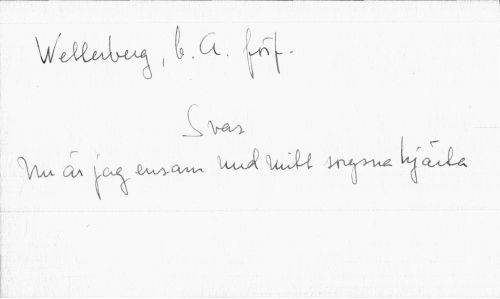 Wellerberg, C. A. förf.
Svar
Nu är jag ensam med mitt sorgsna hjärta